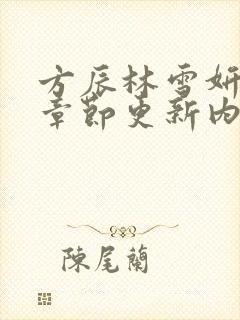 方辰林雪妍
章节更新内
陳尾蘭